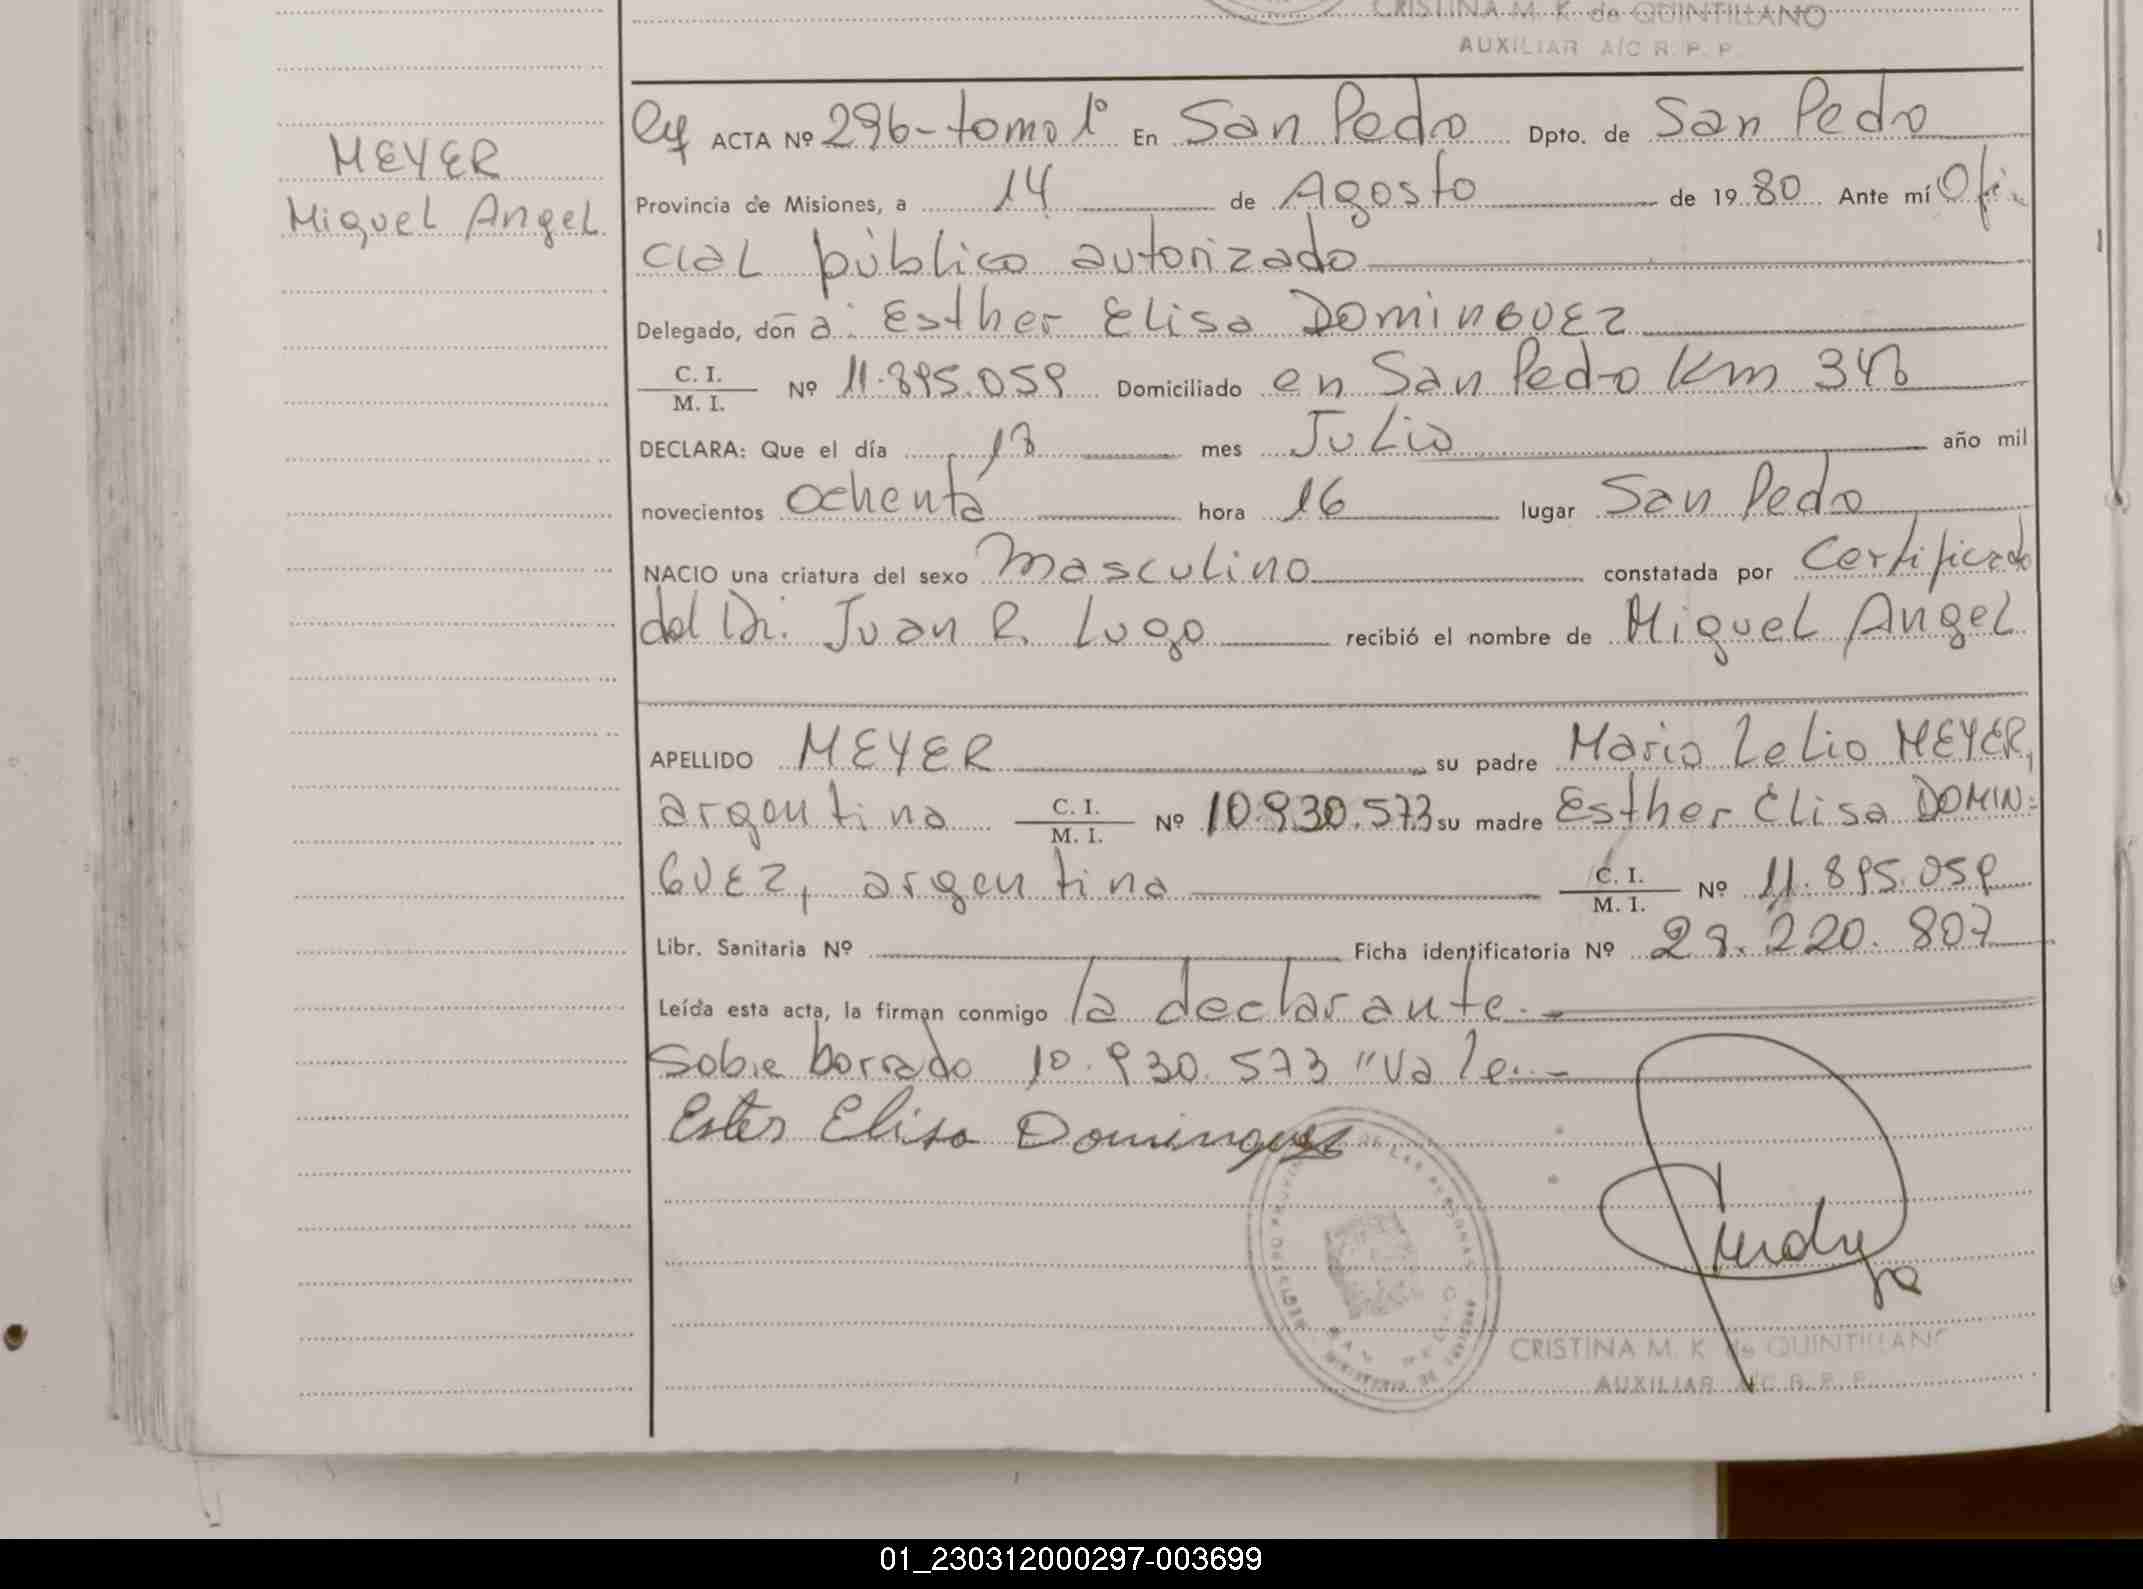 CRISTINA M. K. de QUINTILLANO
AUXILIAR A/C R. P. P.
MEYER
Miguel Angel
ACTA Nº 296-tomo 1º En San Pedro Dpto. de San Pedro
Provincia de Misiones, a 14 de Agosto de 1980 Ante mí Ofi-
cial público autorizado
Delegado, doña: Esther Elisa DOMINGUEZ
C. I.
M. I. Nº 11.895.059 Domiciliado en San Pedro Km 348
DECLARA: Que el día 13 mes Julio año mil
novecientos ochenta hora 16 lugar San Pedro
NACIO una criatura del sexo masculino constatada por Certificado
del Dr. Juan R. Lugo recibió el nombre de Miguel Angel
APELLIDO MEYER su padre Mario Lelio MEYER,
argentino C. I.
M. I. Nº 10.930.573 su madre Esther Elisa DOMIN=
GUEZ, argentina C. I.
M. I. Nº 11.895.059
Libr. Sanitaria Nº Ficha identificatoria Nº 28.220.807
Leída esta acta, la firman conmigo la declarante.-
Sobre borrado 10.930.573 "Vale.-
Ester Elisa Dominguez
SAN PEDRO
CRISTINA M. K. de QUINTILLANO
AUXILIAR A/C R. P. P.
01_230312000297-003699